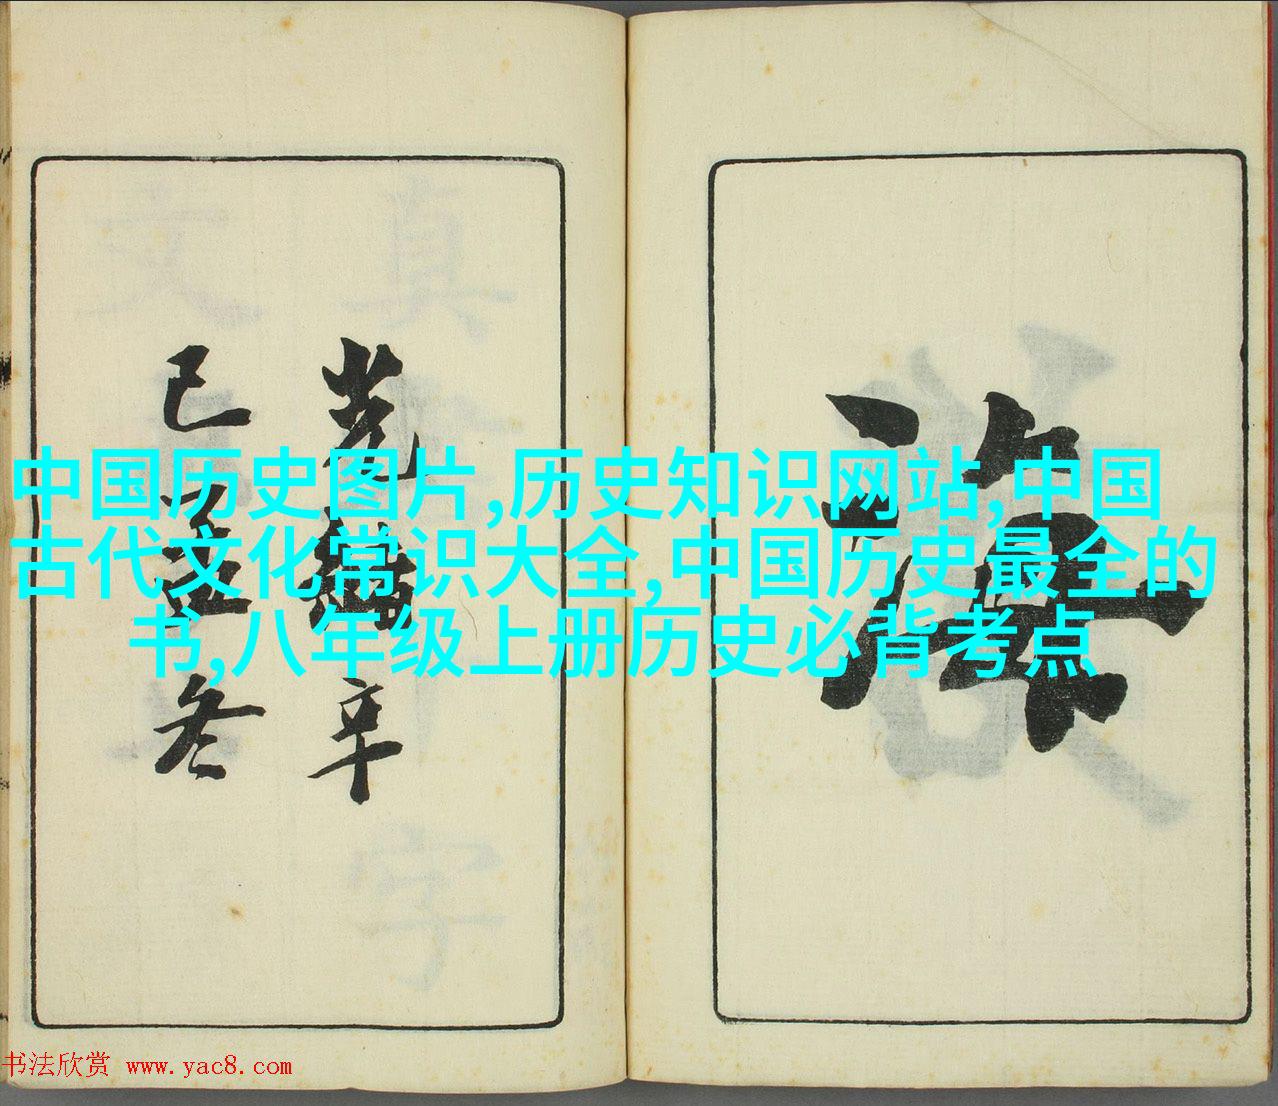 中国历史图片,历史知识网站,中国
古代文化常识大全,中国历史最全的
书,八年级上册历史必背考点
法
光緒辛
巳孟冬
书法欣赏 www.yac8.com